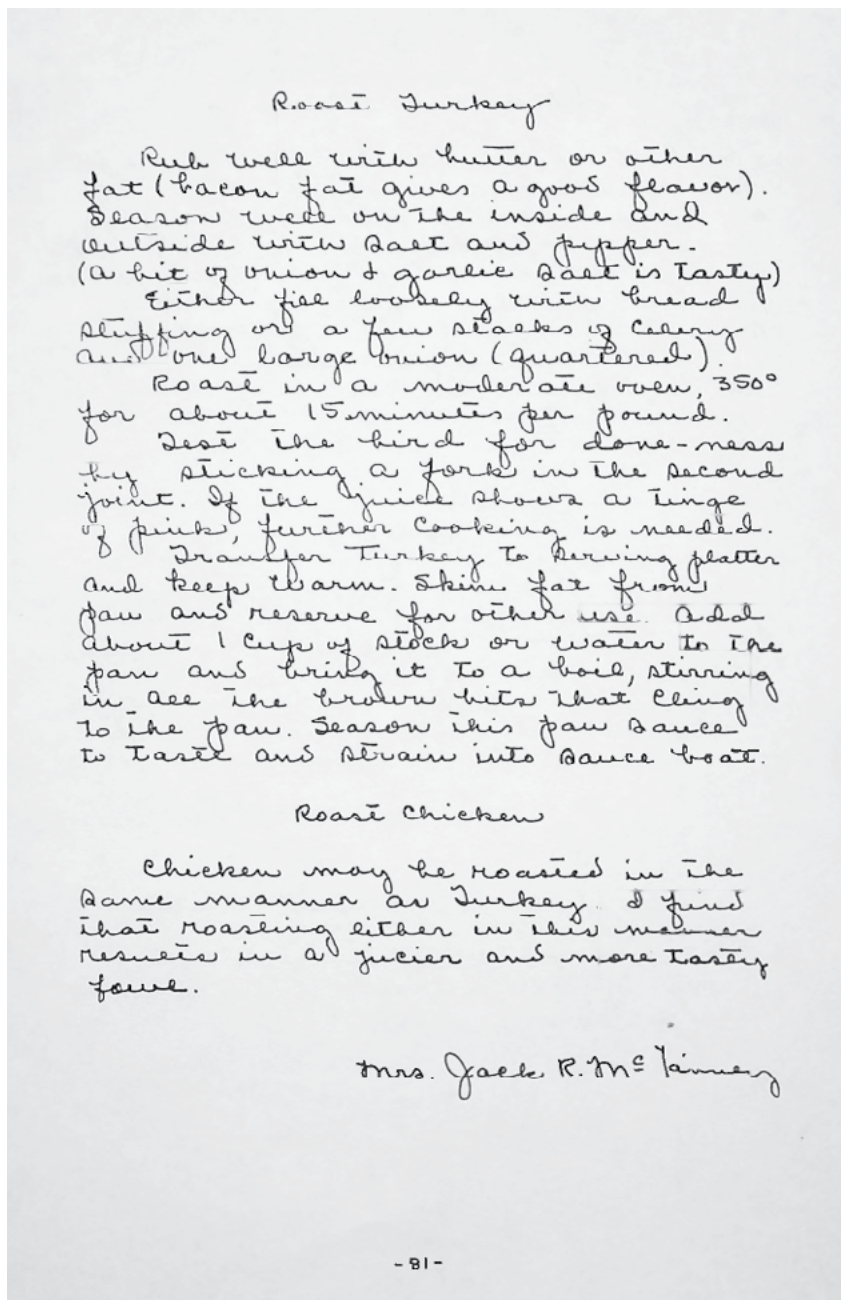 Roast Turkey
Rub well with butter or other
fat (bacon fat gives a good flavor).
Season well on the inside and
outside with salt and pepper.
(a bit of onion & garlic salt is tasty)
Either fill loosely with bread
stuffing or a few stalks of celery
and one large onion (quartered).
Roast in a moderate oven, 350°
for about 15 minutes per pound.
Test the bird for done-ness
by sticking a fork in the second
joint. If the juice shows a tinge
of pink, further cooking is needed.
Transfer Turkey to serving platter
and keep warm. Skim fat from
pan and reserve for other use. Add
about 1 cup of stock or water to the
pan and bring it to a boil, stirring
in all the brown bits that cling
to the pan. Season this pan sauce
to taste and strain into sauce boat.
Roast Chicken
Chicken may be roasted in the
same manner as Turkey. I find
that roasting either in this manner
results in a jucier and more tasty
fowl.
Mrs. Jack R.
-81-